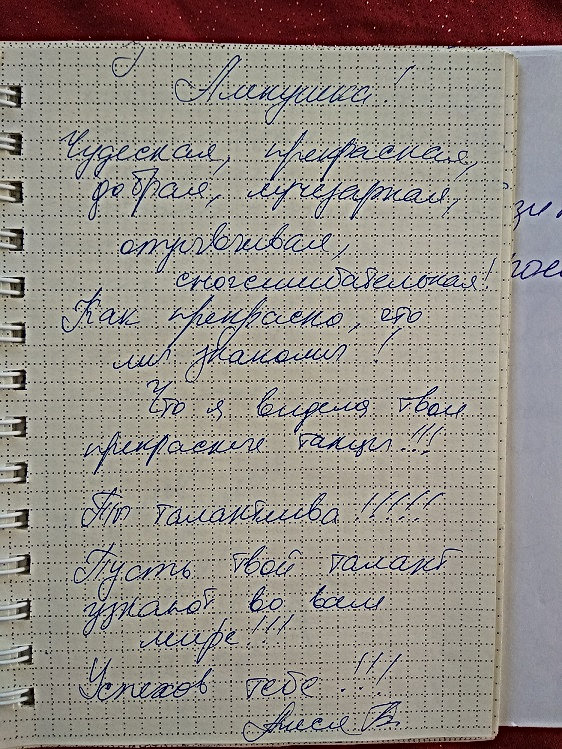 Аленушка!
Чудесная, прекрасная,
добрая, лучезарная,
отзывчивая,
сногсшибательная!
Как прекрасно, что
мы знакомы!
Что я видела твои
прекрасные танцы!!!
Ты талантлива!!!!!
Пусть твой талант
узнают во всем
мире!!!
Успехов тебе!!!
Алеся В.